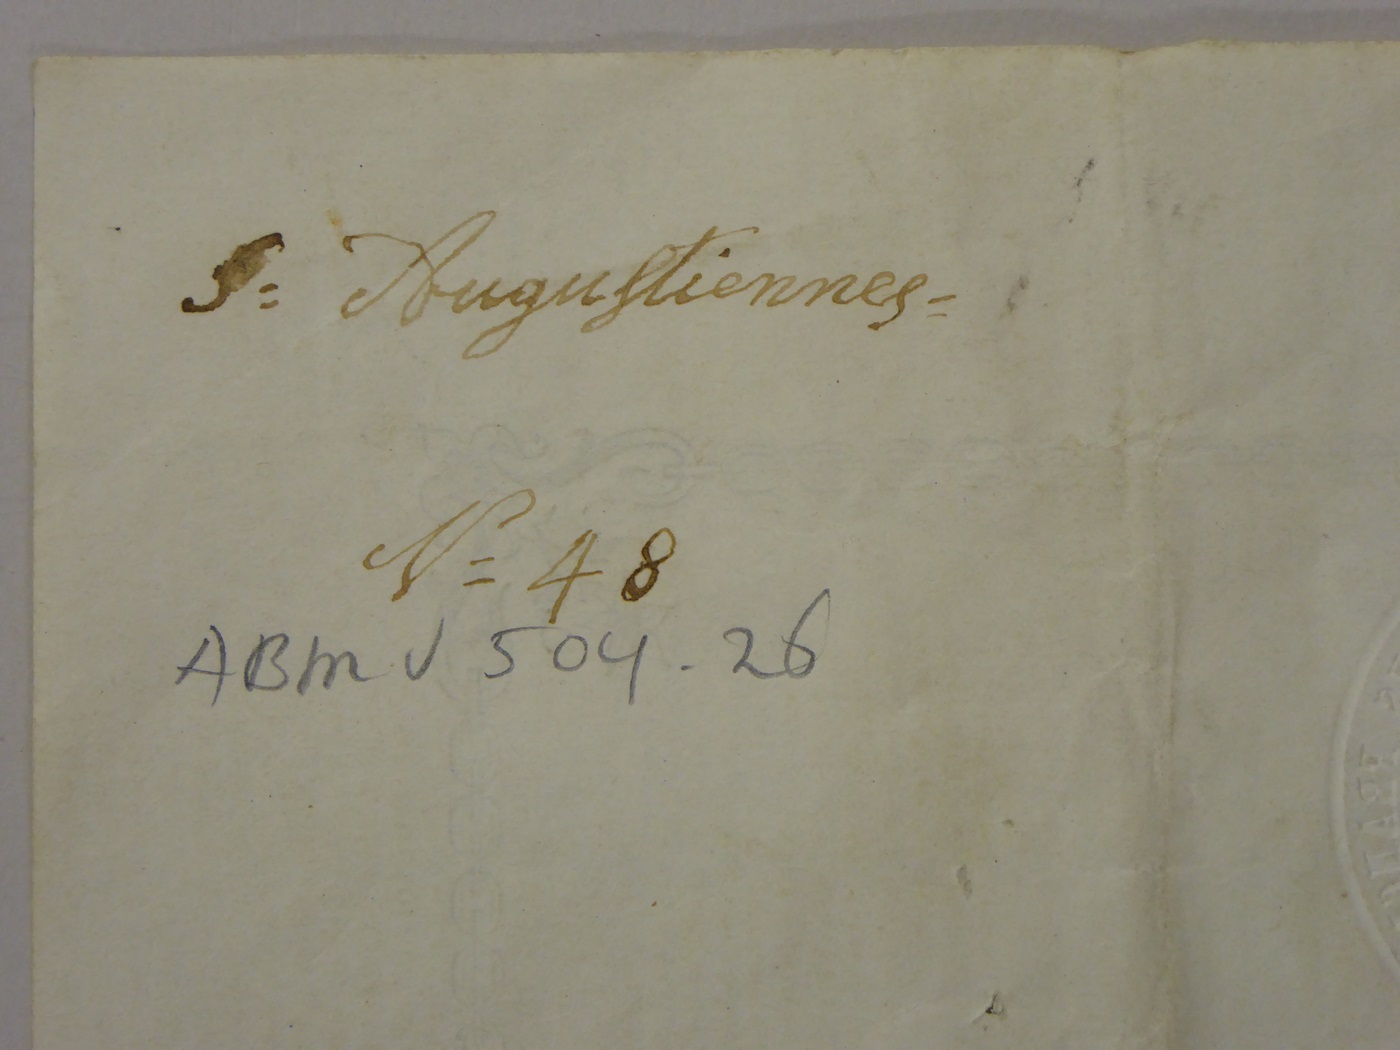 S= Augustiennes=
N= 48
ABM v 504.26